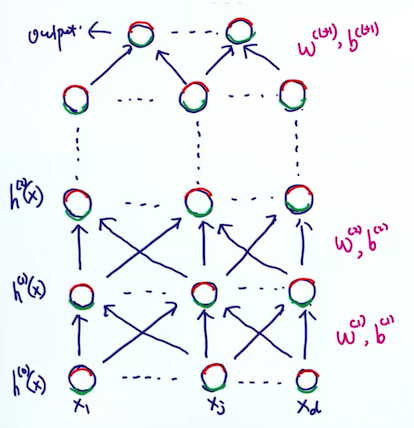 output
w^(L+1), b^(L+1)
h^(2)(x)
w^(2), b^(2)
h^(1)(x)
w^(1), b^(1)
h^(0)(x)
x_1 x_j x_d